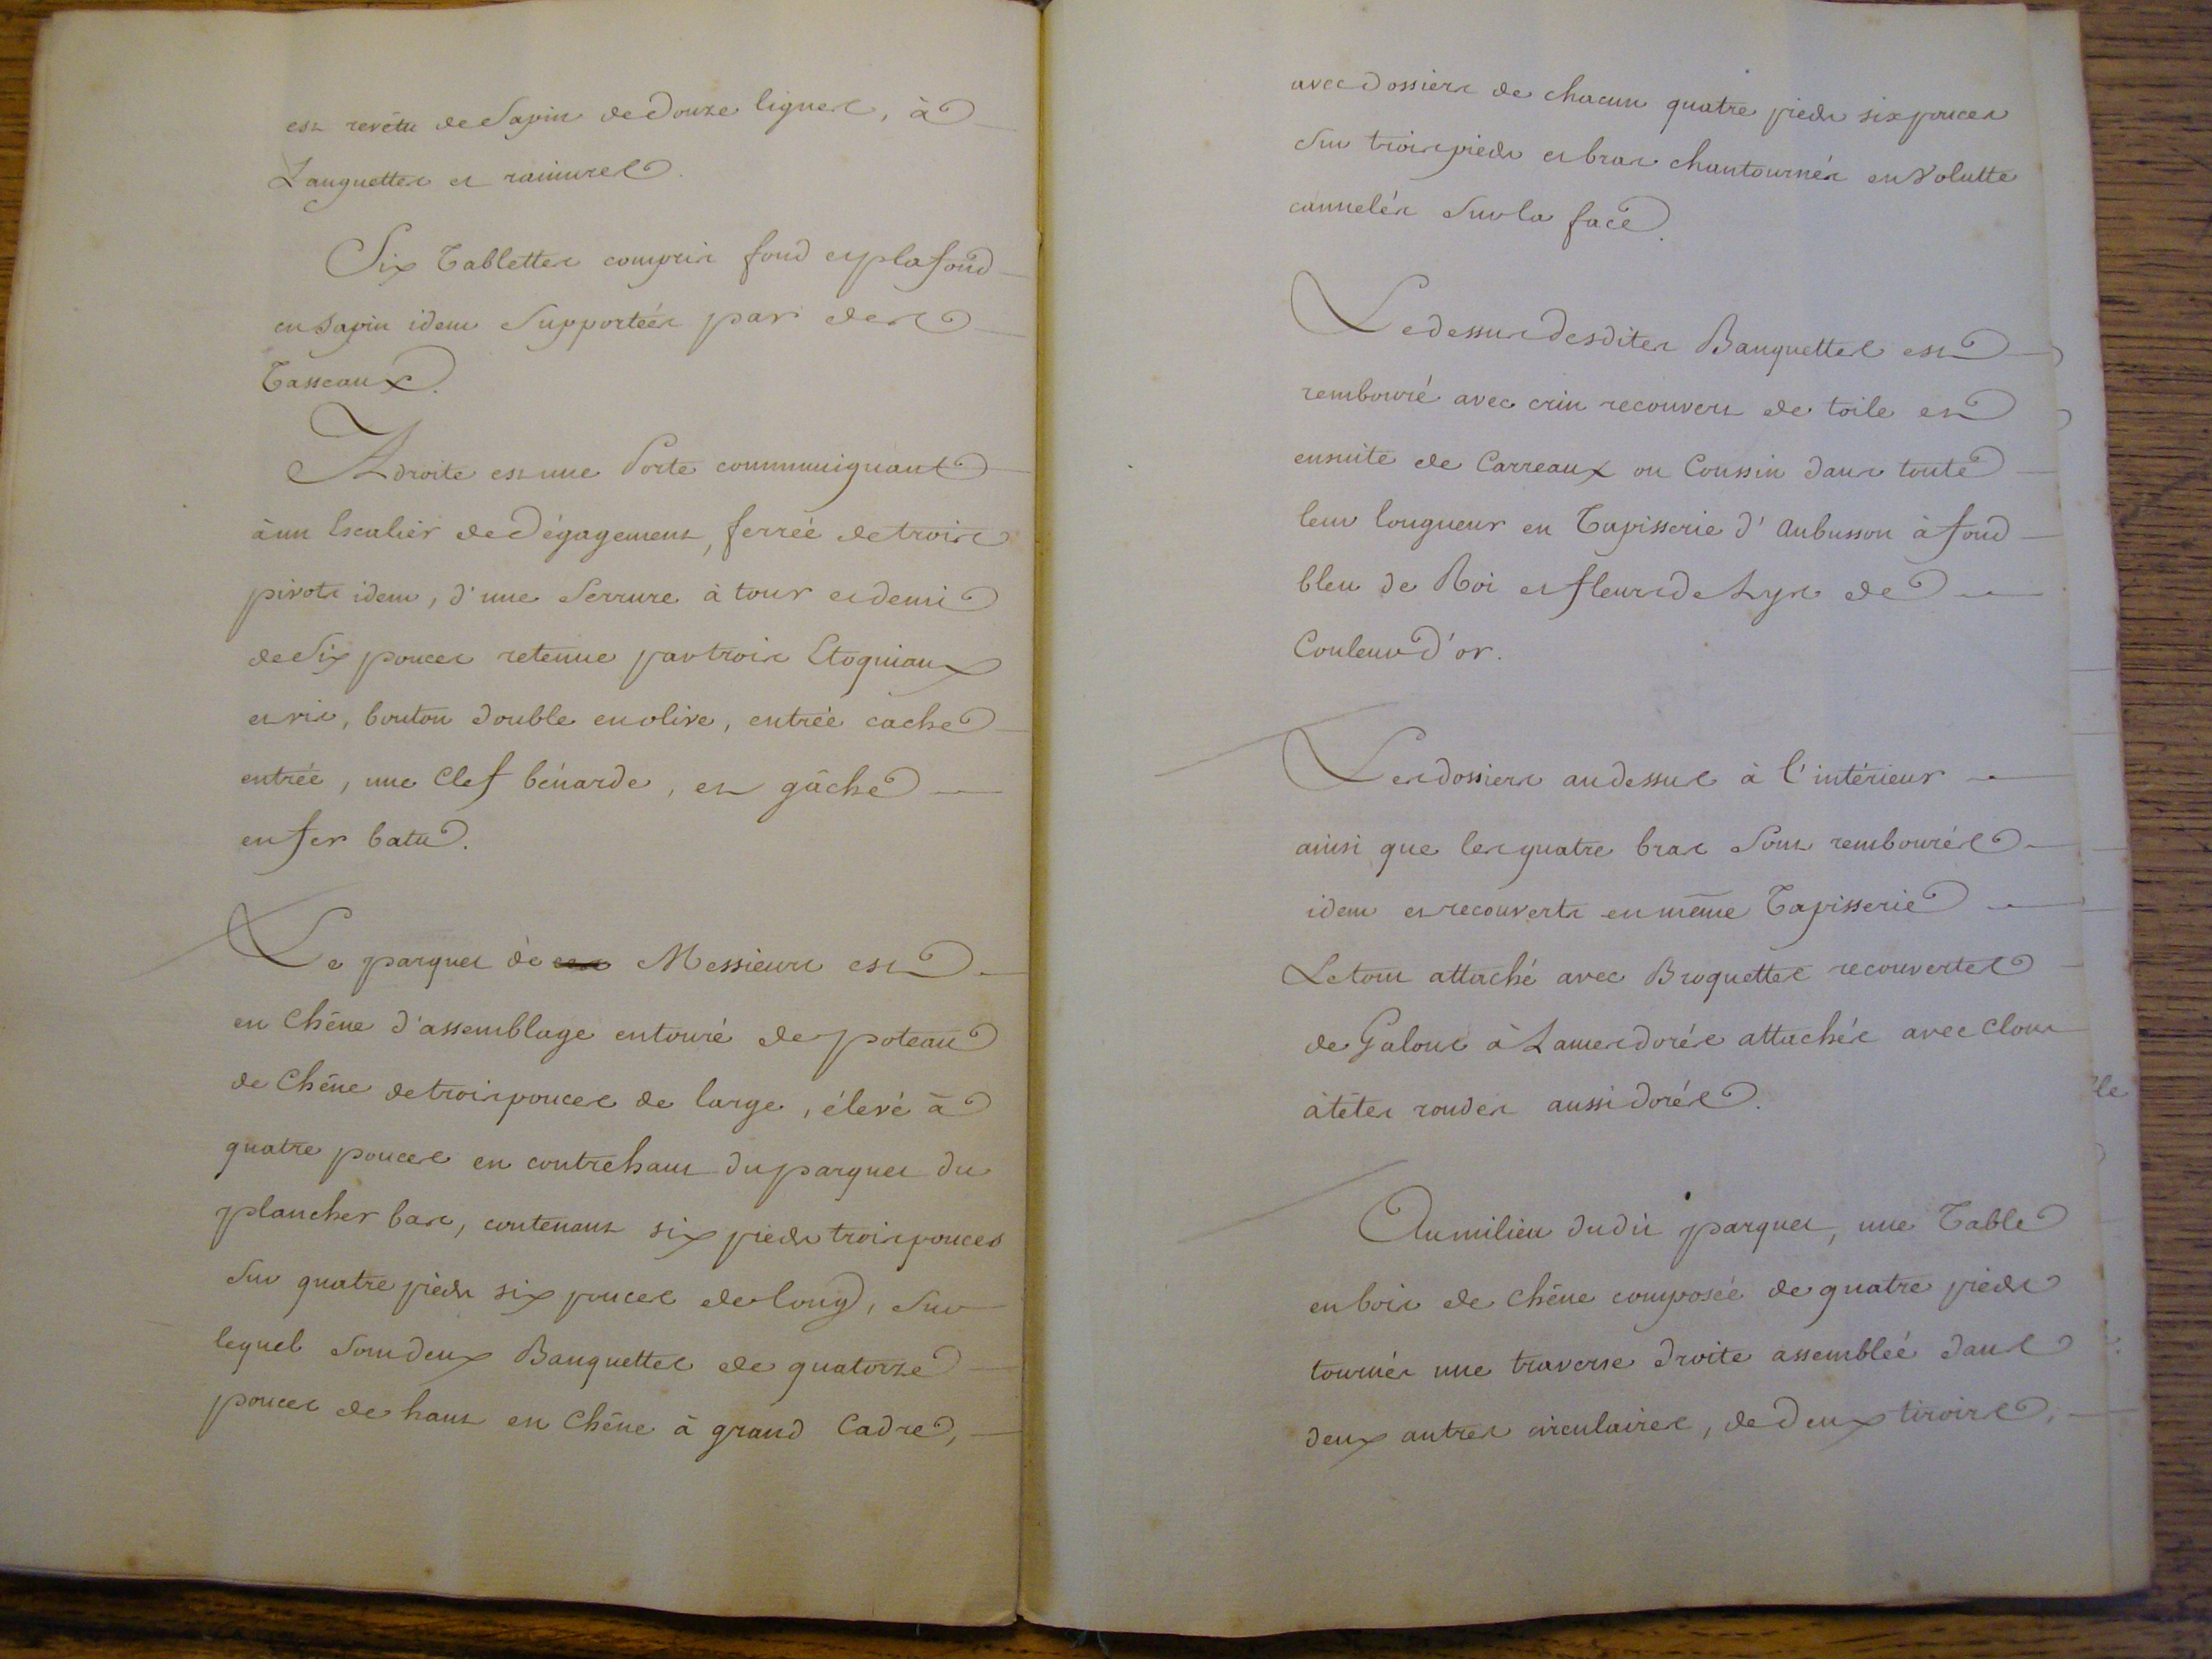 est revêtu de Sapin de Douze lignes, à
Languettes et rainures.
Six Tablettes compris fond et plafond
en Sapin idem Supportées par des
Tasseaux.
A droite est une Porte communiquant
à un Escalier de Dégagement, ferrée de trois
pivots idem, d'une Serrure à tour et demi
de Six pouces retenue par trois Etoquiaux
et vis, bouton double en olive, entrée cache
entrée, une Clef bénarde, et gâche
en fer batu.
Le parquet de Messieurs est
en Chêne d'assemblage entouré de poteau
de Chêne de trois pouces de large, élevé à
quatre pouces en contrehaut du parquet du
plancher bas, contenant six pieds trois pouces
Sur quatre pieds six pouces de long, Sur
lequel Sont deux Banquettes de quatorze
pouces de haut en Chêne à grand Cadre,
avec Dossiers de chacun quatre pieds six pouces
Sur trois pieds et bras chantournés en Volutte
cannelés Sur la face.
Le dessus desdites Banquettes est
rembouré avec crin recouvert de toile et
ensuite de Carreaux ou Coussin dans toute
leur longueur en Tapisserie d'Aubusson à fond
bleu de Roi et fleurs de Lys de
Couleur d'or.
Les dossiers au dessus à l'intérieur
ainsi que les quatre bras Sont rembourés
idem et recouverts en même Tapisserie
Le tout attaché avec Broquettes recouvertes
de Galons à Lames dorés attachés avec Clous
à têtes rondes aussi dorés.
Au milieu du dit parquet, une Table
en bois de chêne composée de quatre pieds
tournés une traverse droite assemblée dans
deux autres circulaires, de deux tiroirs,